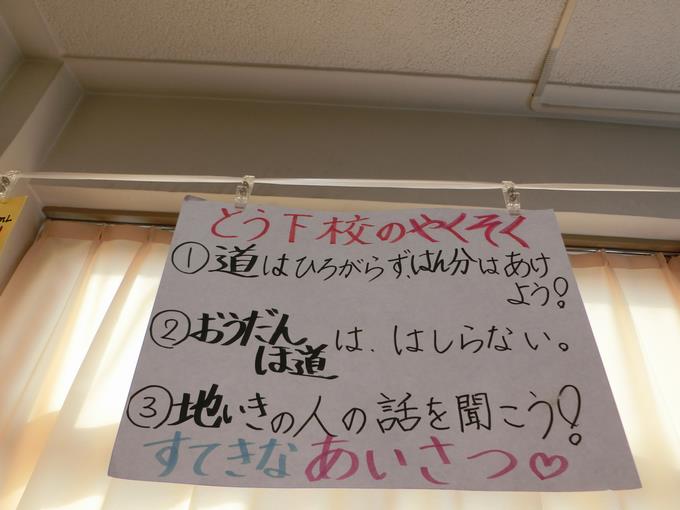 とう下校のやくそく
①道はひろがらず、はん分はあけ
よう!
②おうだん
ほ道は、はしらない。
③地いきの人の話を聞こう!
すてきなあいさつ♡